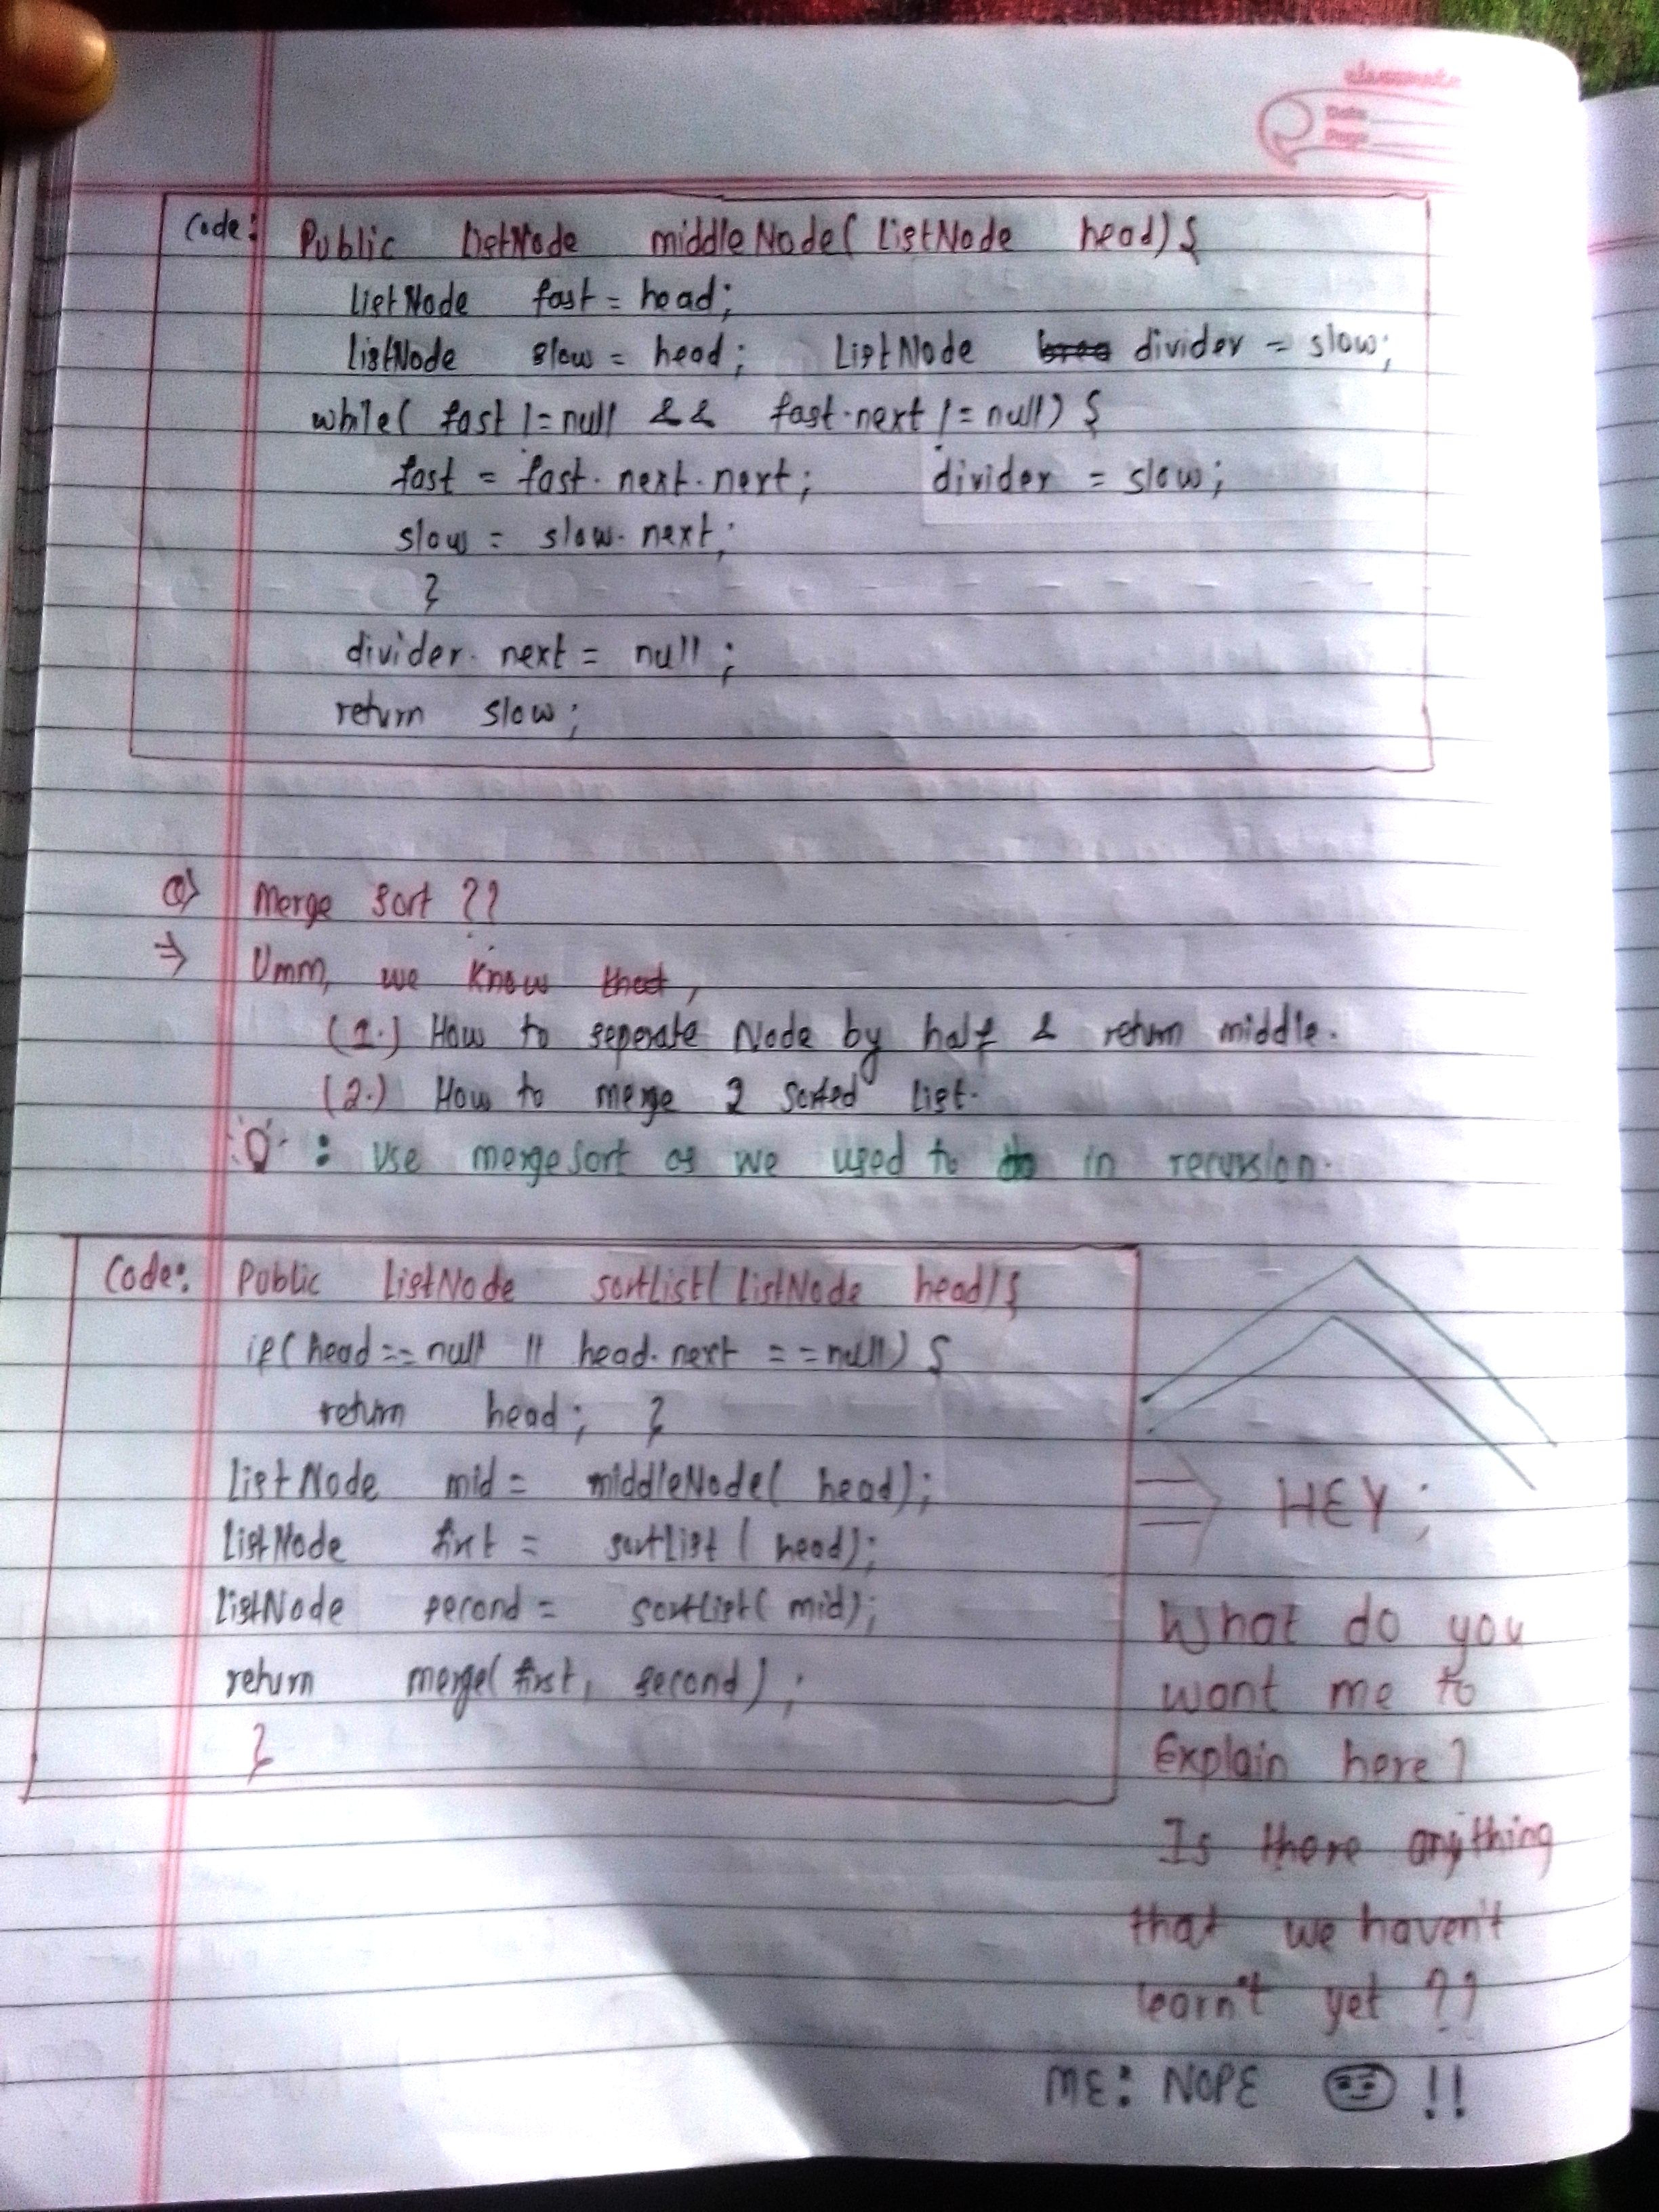 classmate
Date
Page
Code: Public ListNode middleNode( ListNode head) {
ListNode fast = head;
ListNode slow = head; ListNode divider = slow;
while( fast != null && fast.next != null) {
fast = fast.next.next; divider = slow;
slow = slow.next;
}
divider.next = null;
return slow;
Q> Merge Sort ??
⇒ Umm, we know that,
(1.) How to seperate Node by half & return middle.
(2.) How to merge 2 sorted list.
: Use mergesort as we used to do in recursion.
Code: Public ListNode sortList( ListNode head) {
if( head == null || head.next == null) {
return head; }
ListNode mid = middleNode( head);
ListNode first = sortList( head);
ListNode second = sortList( mid);
return merge( first, second);
}
⇒ HEY;
What do you
want me to
Explain here?
Is there anything
that we haven't
learn't yet ??
ME: NOPE !!